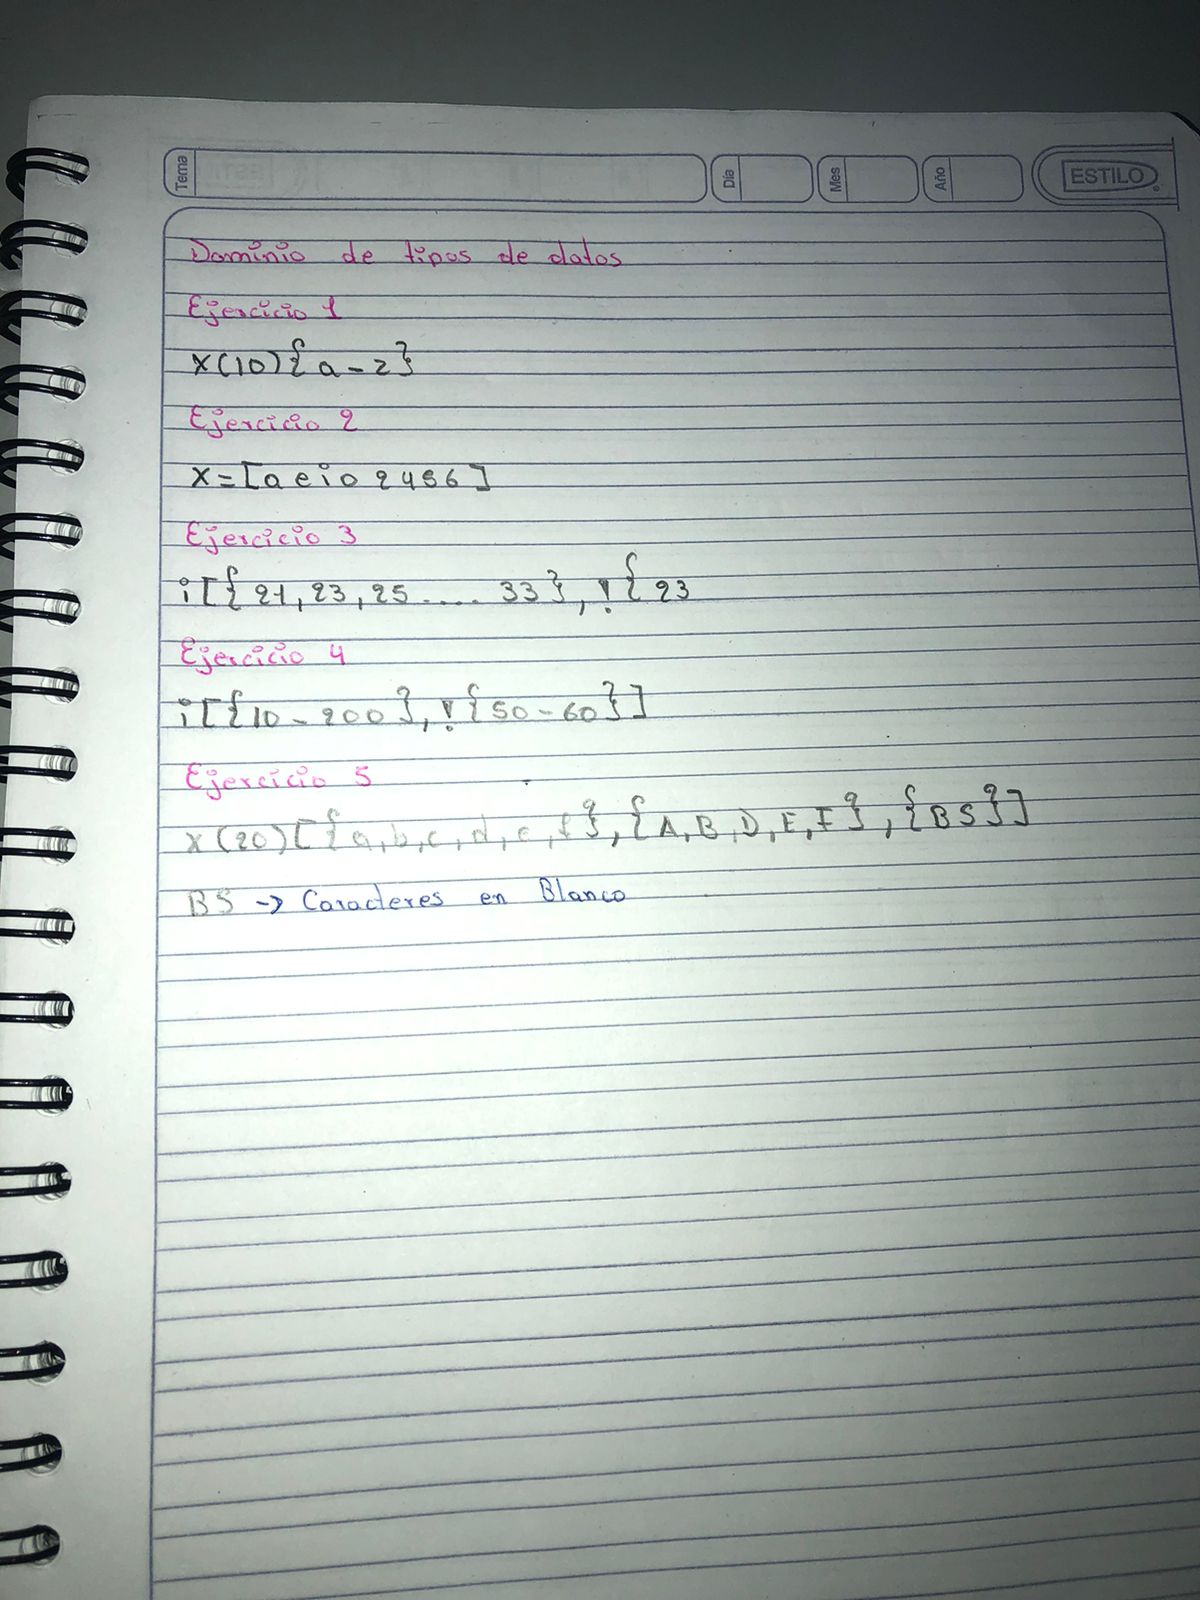 Tema Día Mes Año ESTILO
Dominio de tipos de datos
Ejercicio 1
X(10){a-z}
Ejercicio 2
X=[aeio 2456]
Ejercicio 3
i[{21,23,25.... 33},!{23
Ejercicio 4
i[{10-200},!{50-60}]
Ejercicio 5
X(20)[{a,b,c,d,e,f},{A,B,D,E,F},{BS}]
BS → Caracteres en Blanco